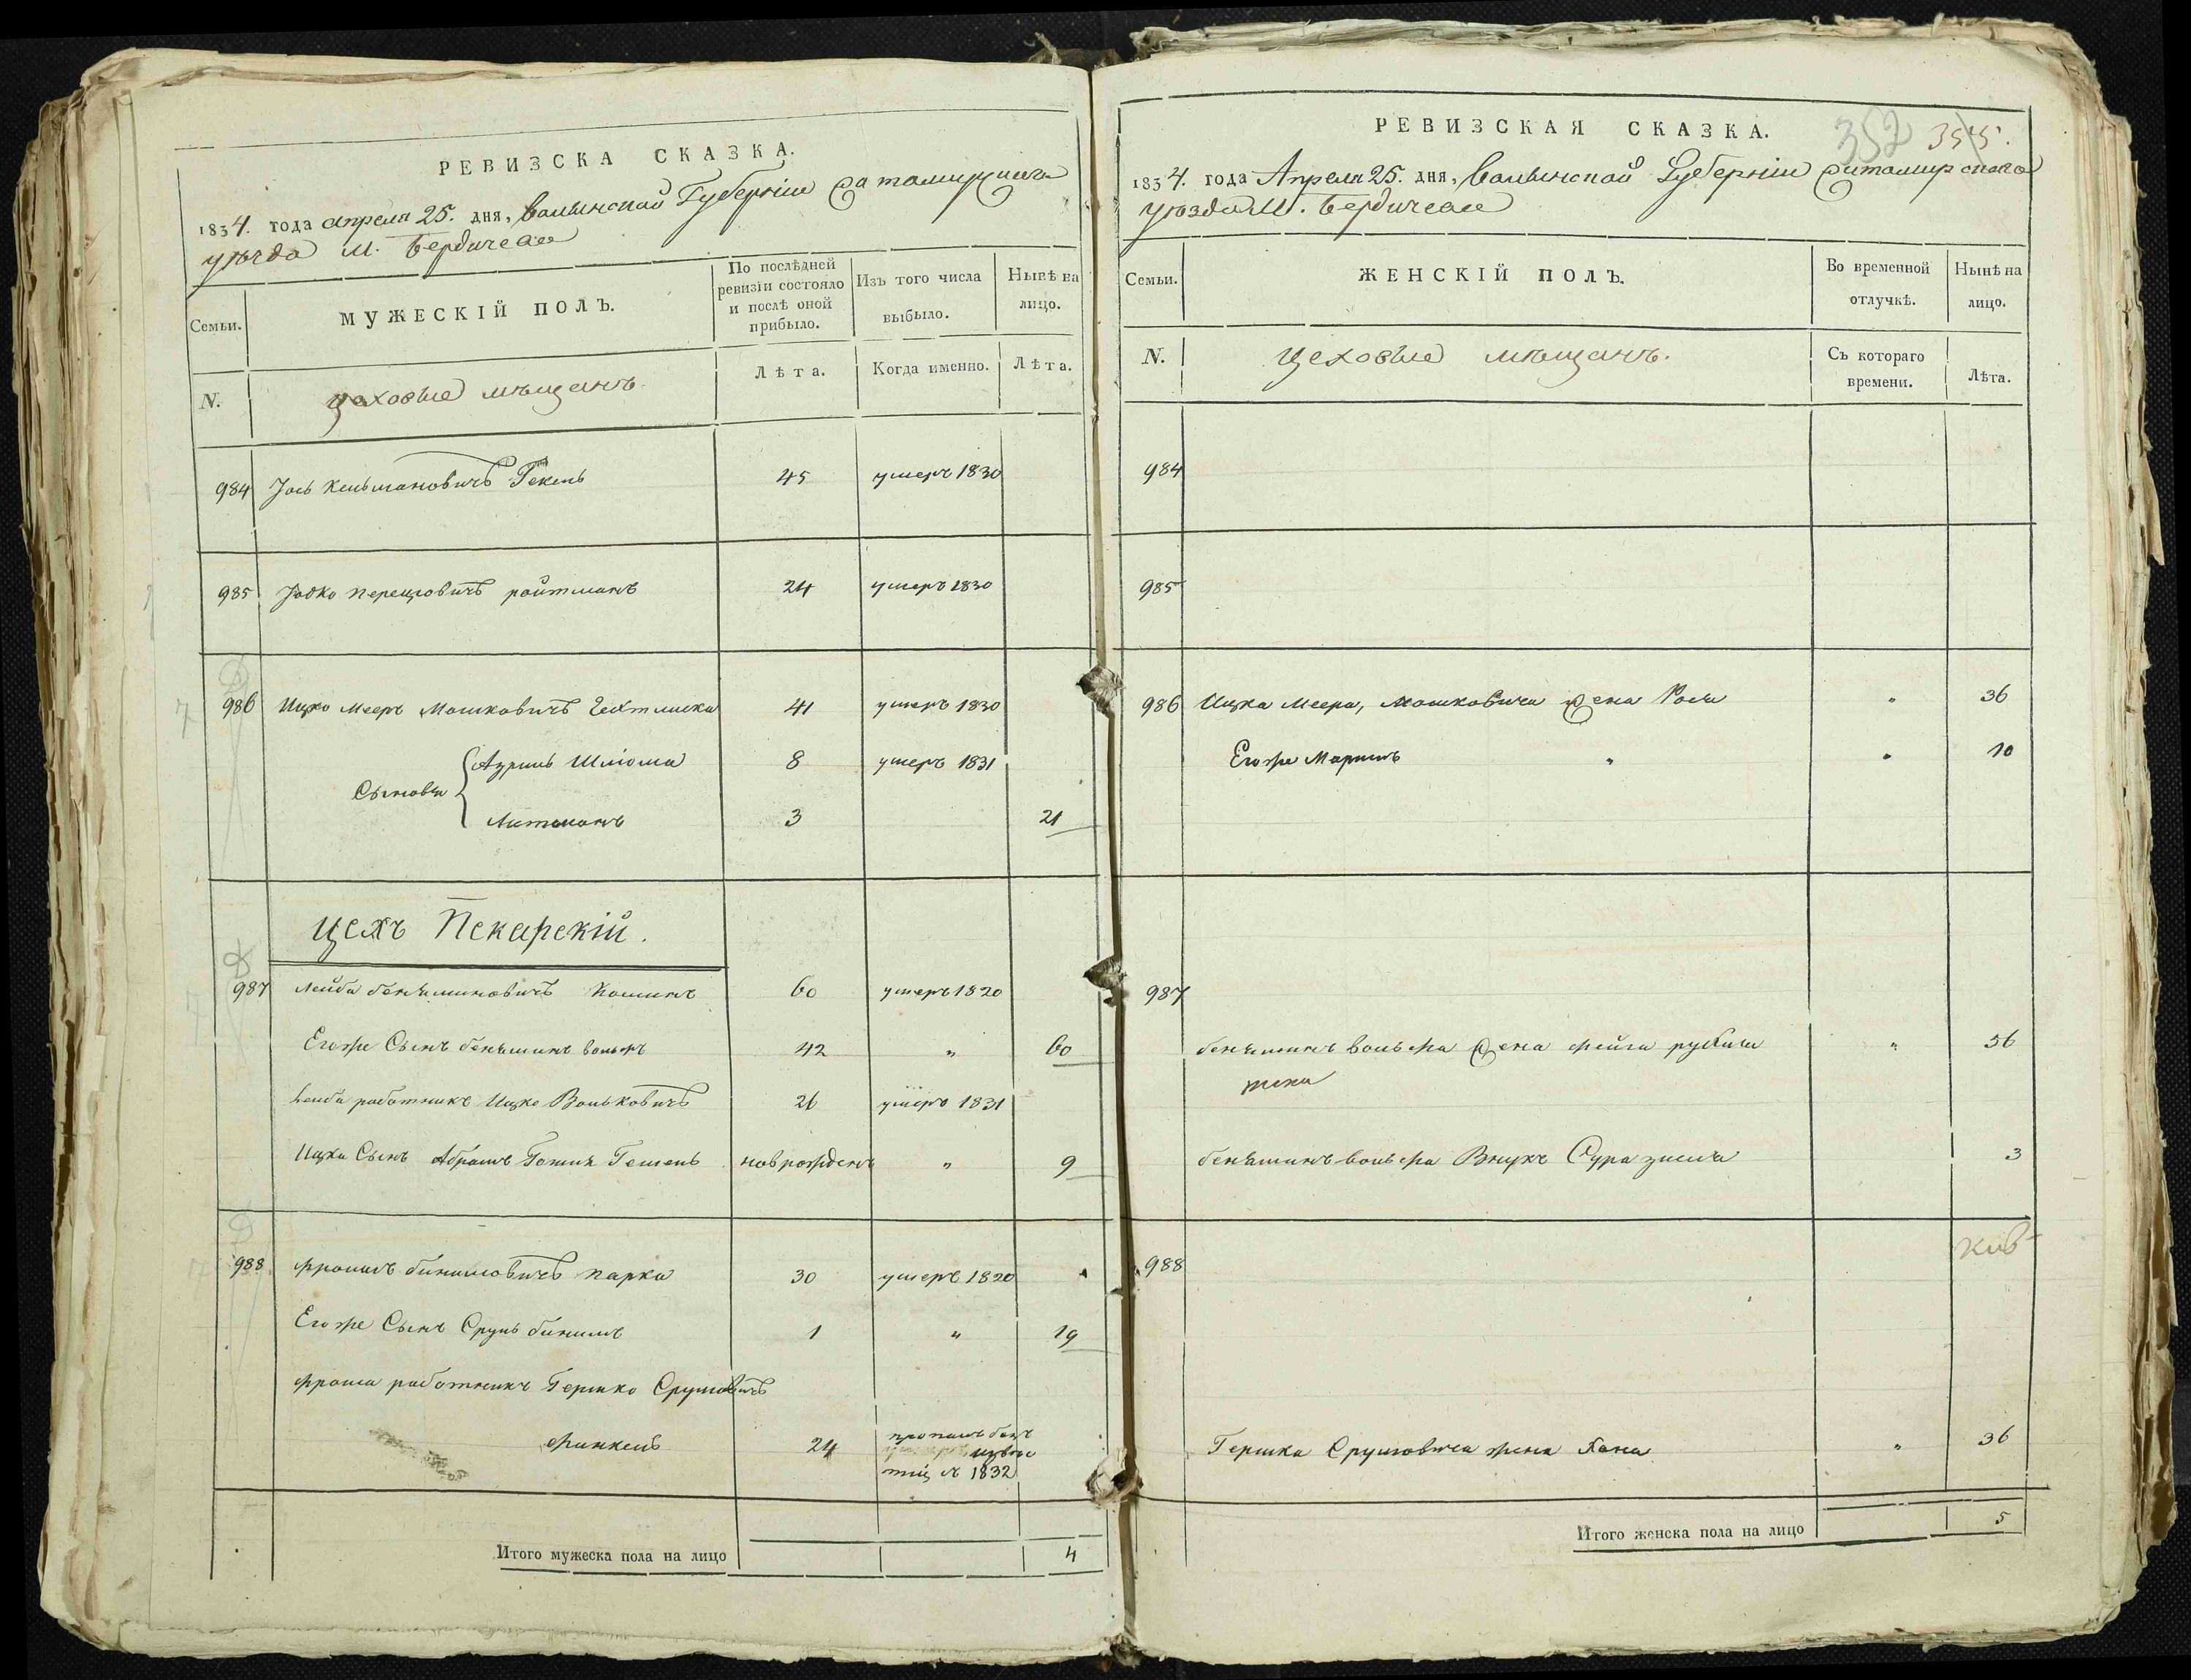 РЕВИЗСКА СКАЗКА.
1834. года апреля 25. дня, Волынской Губернiи Житомирскаго
уѣзда М. Бердичева
Семьи.
МУЖЕСКІЙ ПОЛЪ.
По послѣдней ревизіи состояло и послѣ оной прибыло.
Изъ того числа выбыло.
Нынѣ на лицо.
N.
цеховые мѣщанъ.
Лѣта.
Когда именно.
Лѣта.
984 Іось Кельмановичъ Гекель 45 умеръ 1830
985 Іовко Перецовичъ ройтманъ 24 умеръ 1830
986 Ицко Мееръ Мошковичъ 41 умеръ 1830
Сыновья Азриль Шлiома 8 умеръ 1831
Литманъ 3 21
Цехъ Пекарскій.
987 Лейба беняминовичъ 60 умеръ 1820
Егоже Сынъ беняминъ вольфъ 42 " 60
Лейба работникъ Ицко Вольковичъ 26 умеръ 1831
Ицка Сынъ Абрамъ новорожденъ " 9
988 фроимъ биниловичъ парка 30 умеръ 1820
Егоже Сынъ Сруль 1 " 19
фроима работникъ Гершко Срулiовичъ
финкель 24 пропалъ безъ
извѣс
тiй в 1832
Итого мужеска пола на лицо 4
РЕВИЗСКАЯ СКАЗКА.
352 355.
1834. года Апреля 25. дня, Волынской Губернiи Житомирскаго
уѣзда М. Бердичева
Семьи.
ЖЕНСКІЙ ПОЛЪ.
Во временной отлучкѣ.
Нынѣ на лицо.
N.
цеховые мѣщанъ.
Съ котораго времени.
Лѣта.
984
985
986 Ицка Меера, Мошковича жена Рося " 36
Егоже Марiимъ " " 10
987
бенямина вольфа жена фейга " 56
бенямина вольфа Внукъ Сура 3
988
Гершка Срулiовича жена Хана " 36
Итого женска пола на лицо 5